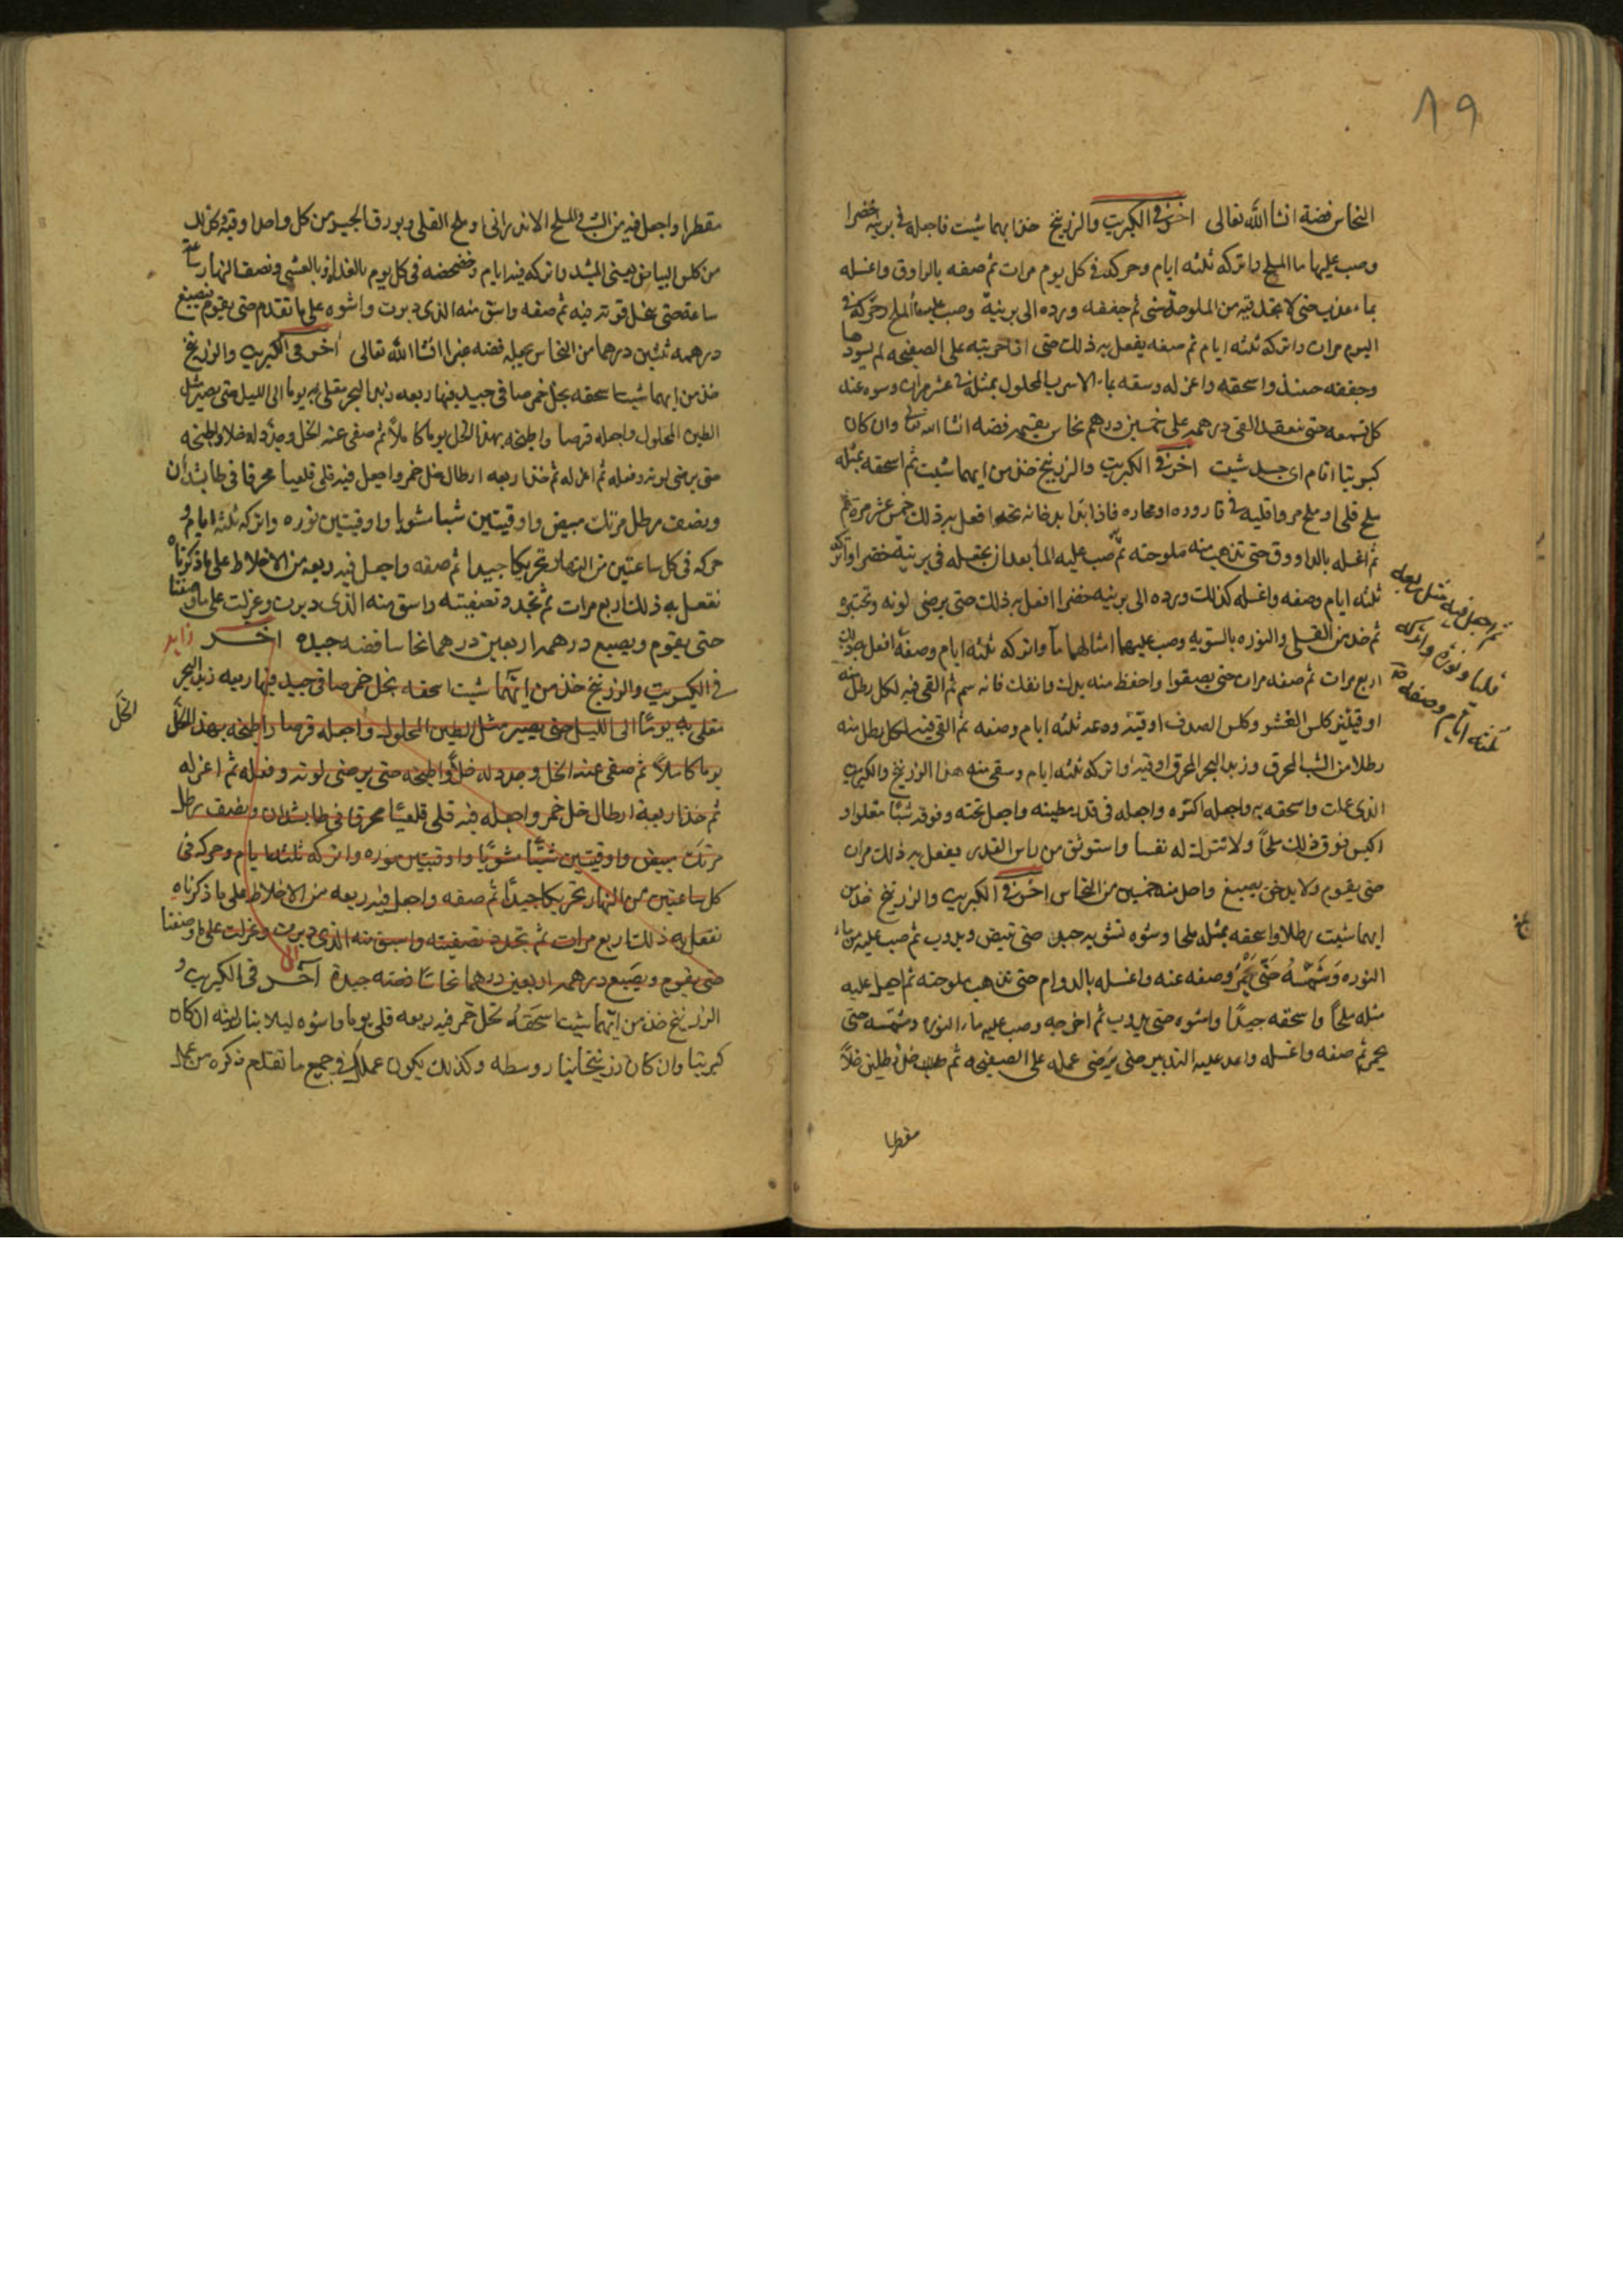 ٨٩
النحاس فضة انشا الله تعالى اخر في الكبريت والزرنيخ خذ ايهما شيت فاجعله في برنيه خضرا
وصب عليها ما الملح واتركه ثلثه ايام وحركه في كل يوم مرات ثم صفه بالراوق واغسله
بماء عذب حتى لا تجد فيه من الملوحة شى ثم جففه ورده الى برنية وصب عليه ماُ الملح وحركه في
اليوم مرات واتركه ثلثه ايام ثم صفه يفعل به ذلك حتى اذا جربته على الصفيحه لم يسودها
وجففه حينئذ واسحقه واعزله وسقه بماء الاسرب المحلول بمثله في عشر مرات وسوه عند
كل تسعه حتى ينعقد القى درهمه على خمسين درهم نحاس يقيم فضه انشا الله تعالى وان كان
كبريتا اقام اى جسد شيت اخر في الكبريت والزرنيخ خذ من ايهما شيت ثم اسحقه بمثله
ملح قلى او ملح مر واقليه في قاروره او محاره فاذا ابتدا بدخانه نحه افعل به ذلك خمس عشر مرة
ثم اغسله بالراووق حتى تذهب منه ملوحته ثم صب عليه الما بعد ان يجعله في برنية خضرا واتركه
ثلثه ايام وصفه واغسله كذلك ورده الى برنيه خضرا افعل به ذلك حتى يرضى لونه وتختبره
ثم خذ من القلى والنوره بالسويه وصب عليهما امثالهما مآ واتركه ثلثه ايام وصفه افعل به ذلك
ثم اجعل فيه مثل ربعه
قليا ونورة واتركه
ثلثه ايام وصفه
اربع مرات ثم صفه مرات حتى يصفوا واحفظ منه يدك وانفك فانه سم ثم القى فيه لكل رطل منه
اوقيتين كلس القشور وكلس الصدف اوقية ودعه ثلثه ايام وصفه ثم القى فيه لكل رطل منه
رطلا من الشب المحرق وزبد البحر المحرق اوقيه واتركه ثلثه ايام وسقى منه هذا الزرنيخ والكبريت
الذى عملت واسحقه به واجعله اكثره واجعله في قدر مطينه واجعل تحته وفوقه شبًا مقلوا و
اكبس فوق ذلك ملحًا ولا تترك له نفسا واستوثق من راس القدر يفعل به ذلك مرات
حتى يقوم ولا يدخن يصبغ واحد منه خمسين من النحاس اخر في الكبريت والزرنيخ خذ من
ايهما شيت رطلا واسحقه بمثله ملحا وسوه تشويه جيده حتى تبيض ويدوب ثم صب عليه من ماء
النوره وَشَمّسْهُ حَتّى يَحْمَرُ وصفه عنه واغسله بالدوام حتى تذهب ملوحته ثم احمل عليه
مثله ملحًا واسحقه جيدًا واشوه حتى يدوب ثم اخرجه وصب عليه ماء النوره وشمّسه حتى
يحمر ثم صفه واغسله واعد عليه التدبير حتى يَرضى عمله على الصفيحه ثم صب خل رطلين خلاً
مقطرا
مقطرا واجعل فيه من الشب والملح الاندرانى وملح القلى وبورق الجيد من كل واحد اوقيه وكذلك
من كلس البياض يعنى المشدد واتركه فيه ايام وخضخضه في كل يوم بالغداة وبالعشى ونصف النهار ساعة
ساعة حتى يخل قوته فيه ثم صفه واسق منه الذى دبرت واشوه على ما تقدم حتى يقوم فيصبغ
درهمه ثلثين درهما من النحاس يجعله فضه عجبا انشا الله تعالى اخر في الكبريت والزرنيخ
خذ من ايهما شيت اسحقه بخل خمر صافى جيد فيها ربعه زبد البحر مقلى به يوما الى الليل حتى يصير مثل
الطين المحلول واجعله قرصا واطبخه بهذا الخل يوما كاملاً ثم صفى عنه الخل وجدد له خلا واطبخه
حتى يرضى لونه وفعله ثم اعزله ثم خذ اربعه ارطال خل خمر واجعل فيه قلى قلعيا محرقا في طابشدان
ونصف رطل مرتك مبيض واوقيتين شبا مشويا واوقيتين نوره واتركه ثلثه ايام و
حركه في كل ساعتين من النهار تحريكا جيدا ثم صفه واجعل فيه ربعه من الاخلاط على ما ذكرناه
نفعل به ذلك اربع مرات ثم تجدد تصفيته واسق منه الذى دبرت وعزلت على ما وصفنا
حتى يقوم ويصبع درهمه اربعين درهما نحاسا فضه جيده اخر زايد
في الكبريت والزرنيخ خذ من ايّهما شيت اسحقه بخل خمر صافى جيد فيها ربعه زبد البحر
مقلى به يومًا الى الليل حتى يصير مثل الطين المحلول واجعله قرصا واطبخه بهذا الخل
الخل
يوما كاملاً ثم صفى عنه الخل وجدد له خلًا واطبخه حتى يرضى لونه وفعله ثم اعزله
ثم خذ اربعة ارطال خل خمر واجعله فيه قلى قلعيًا محرقا في طابشدان ونصف رطل
مرتك مبيض واوقيتين شبًّا مشويًا واوقيتين نوره واتركه ثلثه ايام وحركه في
كل ساعتين من النهار تحريكا جيدًا ثم صفه واجعل فيه ربعه من الاخلاط على ما ذكرناه
نفعل به ذلك اربع مرات ثم تجدد تصفيته واسق منه الذى دبرت وعزلت على ما وصفنا
الى
حتى يقوم ويَصبع درهمه اربعين درهما نحاسًا فضته جيدة آخر في الكبريت و
الزرنيخ خذ من ايّهما شيت اسحَقهُ بخل خمر فيه ربعه قلى يوما واشوه ليلا بنا لينه ان كان
كبريتا وان كان زرنيخا بنار وسطه وكذلك يكون عملك في جميع ما تقدم ذكره من عمل